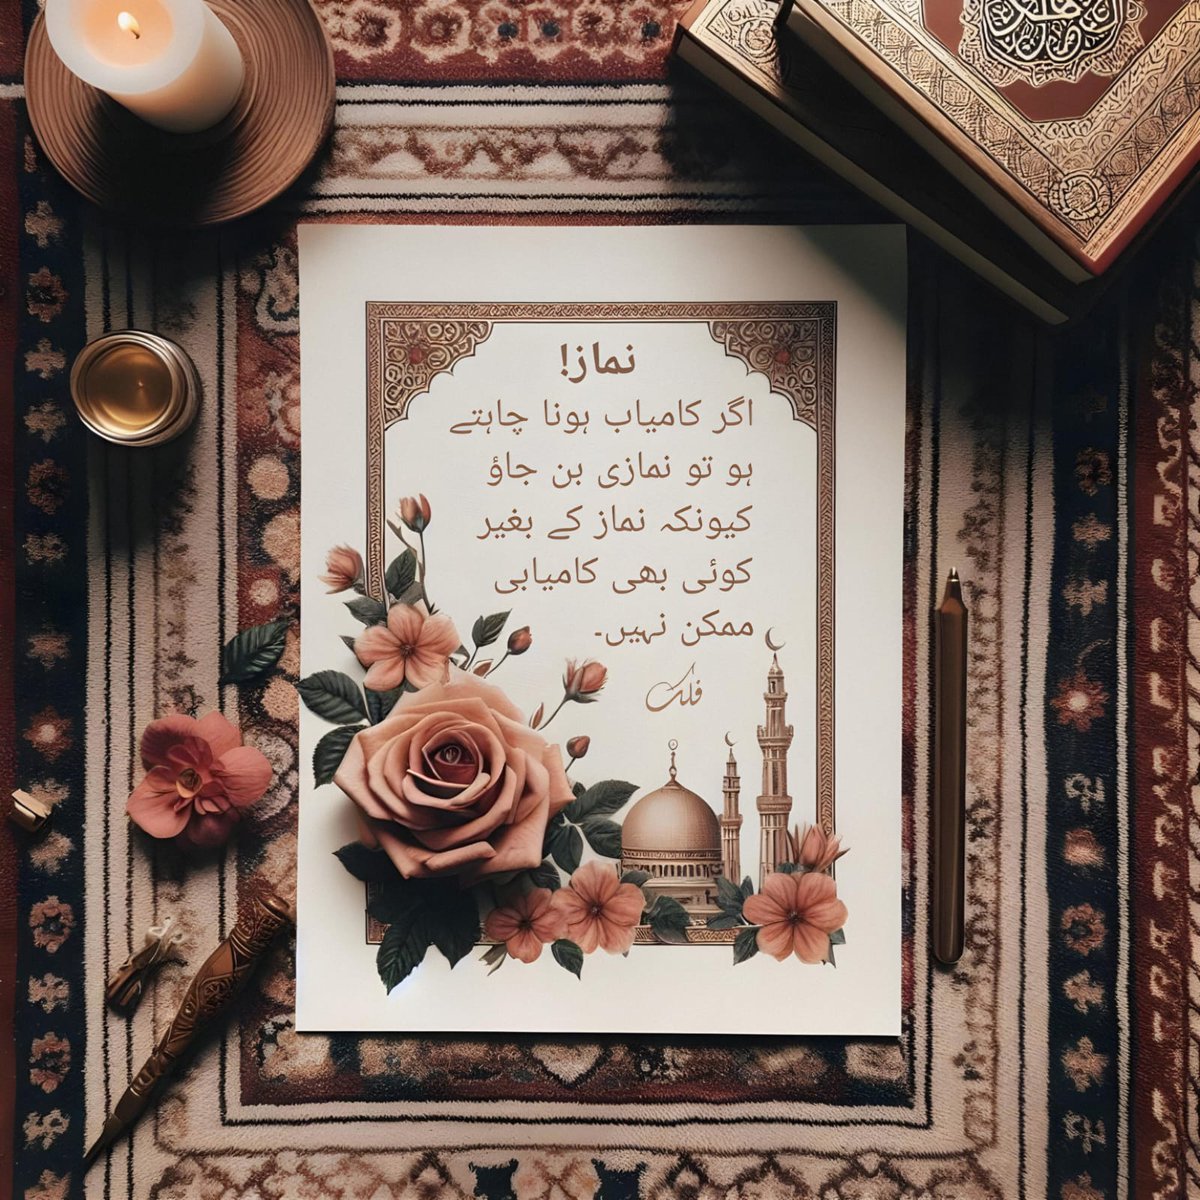 نماز!
اگر کامیاب ہونا چاہتے
ہو تو نمازی بن جاؤ
کیونکہ نماز کے بغیر
کوئی بھی کامیابی
ممکن نہیں۔
فلک